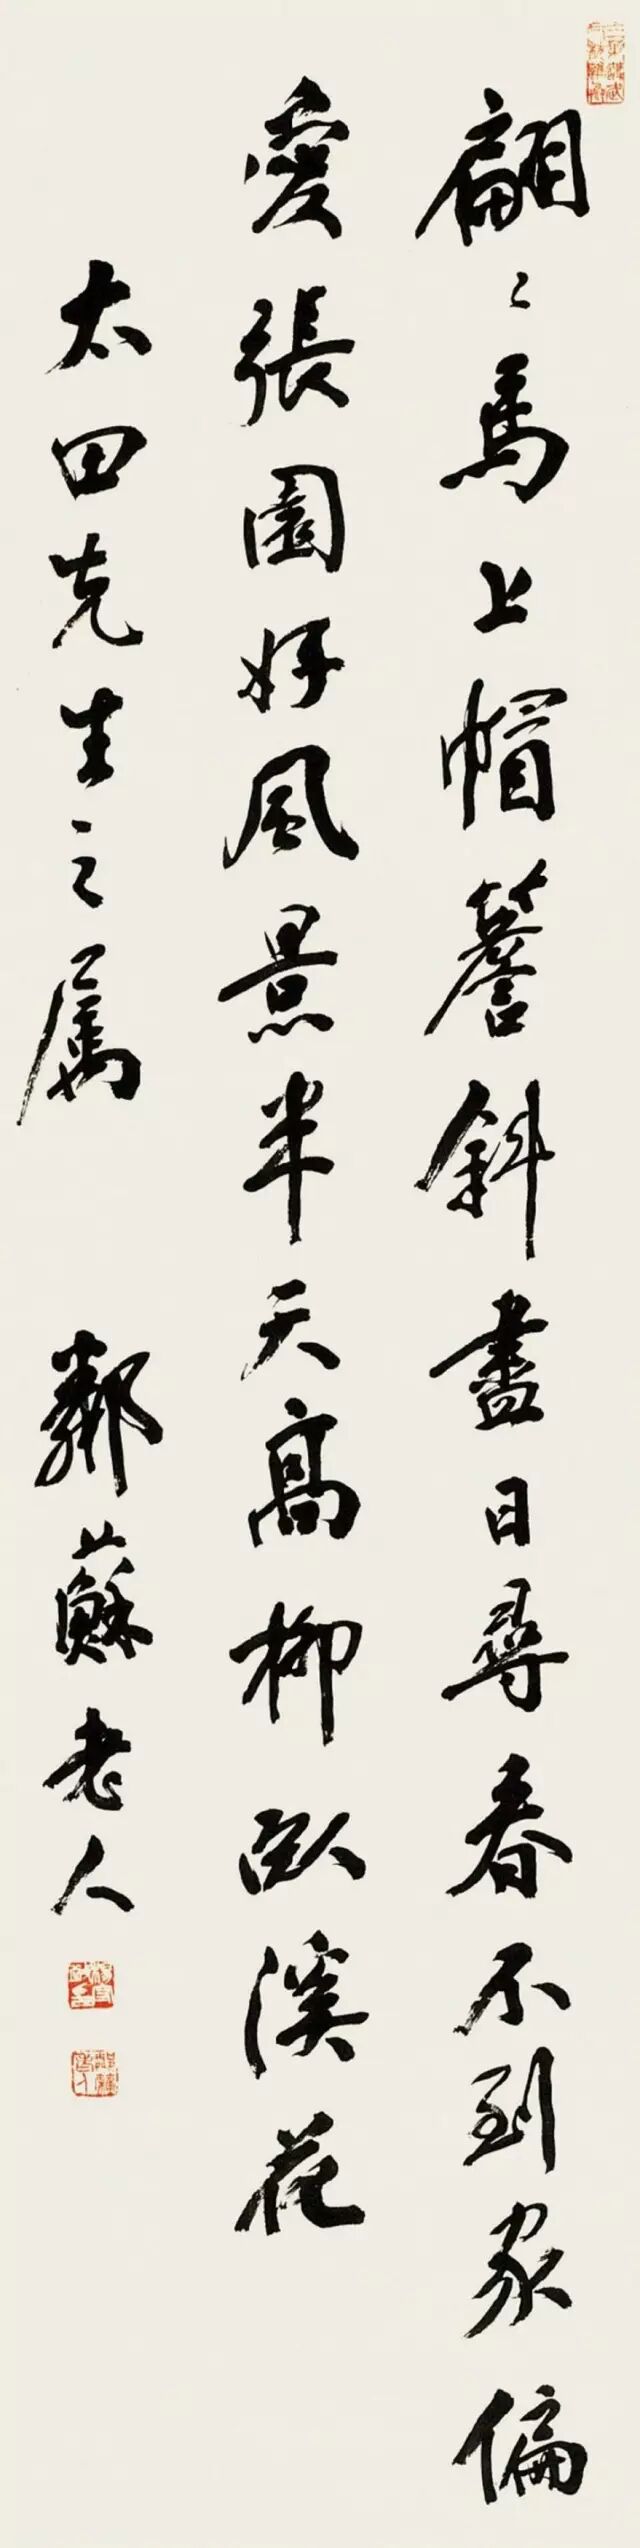 翩〻馬上帽簷斜盡日尋春不到家偏
愛張園好風景半天高柳臥溪花
太田先生之属 鄰蘇老人